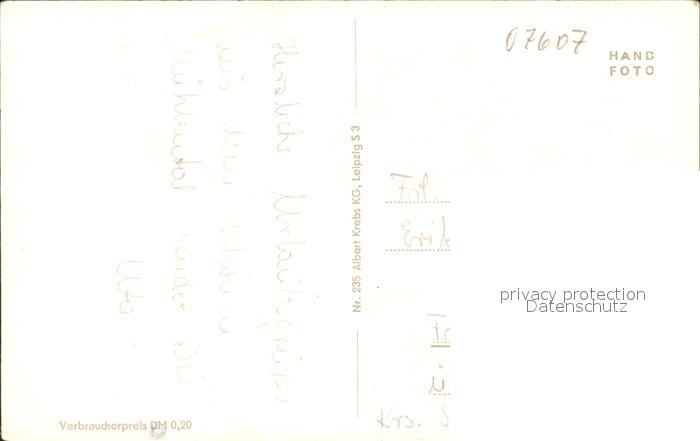 Herzliche Urlaubsgrüße
aus dem schönen
Mühlental sendet Dir
Uta
Verbraucherpreis DM 0,20
Nr. 235 Albert Krebs KG, Leipzig S 3
07607
HAND
FOTO
Frl.
privacy protection
Datenschutz
Krs. S